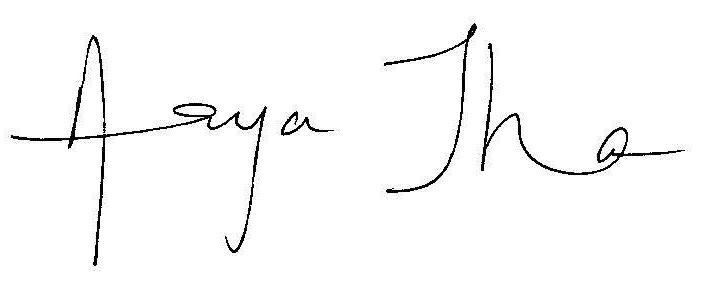 Arya Jha